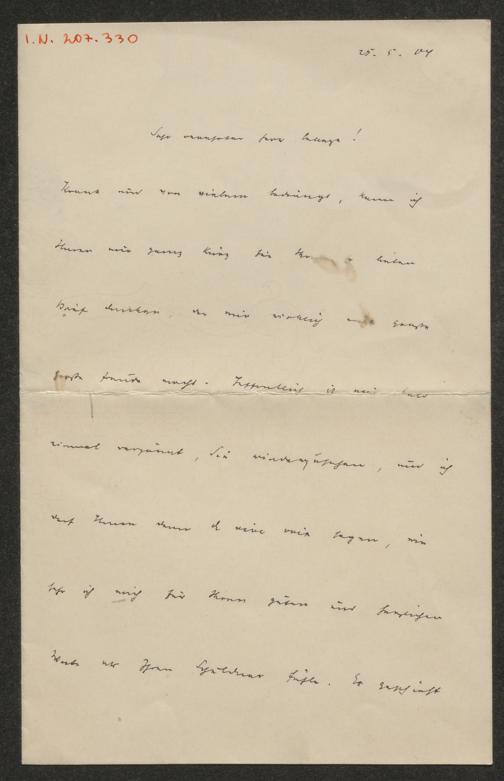 I.N. 207.330
25. 5. 04
Sehr verehrter Herr Kollege!
Krank und von vielem bedrängt, kann ich
Ihnen nur ganz kurz für Ihren lieben
Brief danken, der mir wirklich eine ganz
große Freude macht. Hoffentlich ist mir bald
einmal vergönnt, Sie wiederzusehen, und ich
darf Ihnen dann sagen, wie
sehr ich mich für Ihren guten und herzlichen
Worte als Ihren Schuldner fühle. Es geschieht